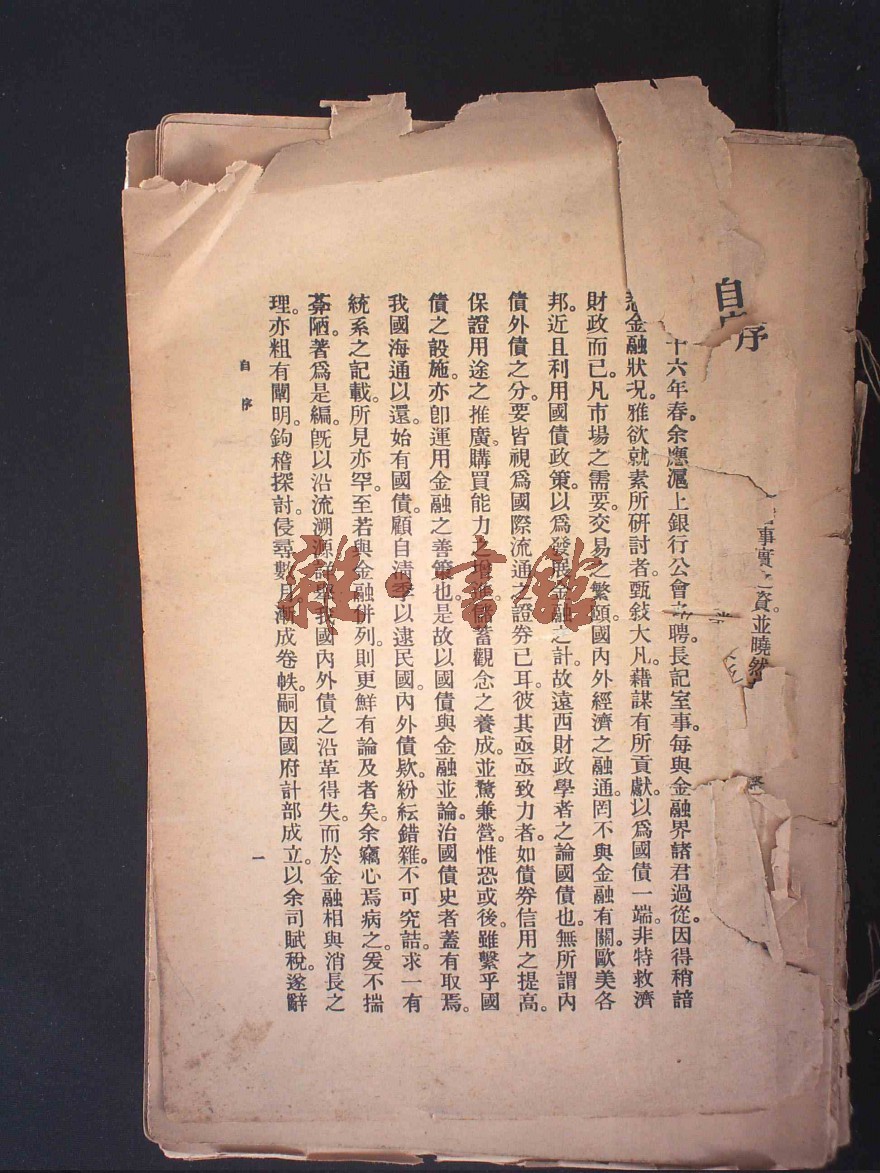 自序
十六年春。余應滬上銀行公會之聘。長記室事。每與金融界諸君過從。因得稍諳
金融狀況。雅欲就素所研討者。甄敍大凡。藉謀有所貢獻。以爲國債一端。非特救濟
財政而已。凡市場之需要。交易之繁頤。國內外經濟之融通。罔不與金融有關。歐美各
邦。近且利用國債政策。以爲發展金融之計。故遠西財政學者之論國債也。無所謂內
債外債之分。要皆視爲國際流通之證券已耳。彼其亟亟致力者。如債券信用之提高。
保證用途之推廣。購買能力之增進。儲蓄觀念之養成。並騖兼營。惟恐或後。雖繫乎國
債之設施。亦卽運用金融之善策也。是故以國債與金融並論。治國債史者蓋有取焉。
我國海通以還。始有國債。顧自清季以逮民國。內外債欵。紛紜錯雜。不可究詰。求一有
統系之記載。所見亦罕。至若與金融併列。則更鮮有論及者矣。余竊心焉病之。爰不揣
棻陋。著爲是編。旣以沿流溯源。詳舉我國內外債之沿革得失。而於金融相與消長之
理。亦粗有闡明。鉤稽探討。侵尋數月。漸成卷帙。嗣因國府計部成立。以余司賦稅。遂辭
自序
一
事實之資。並曉然
雜·書館